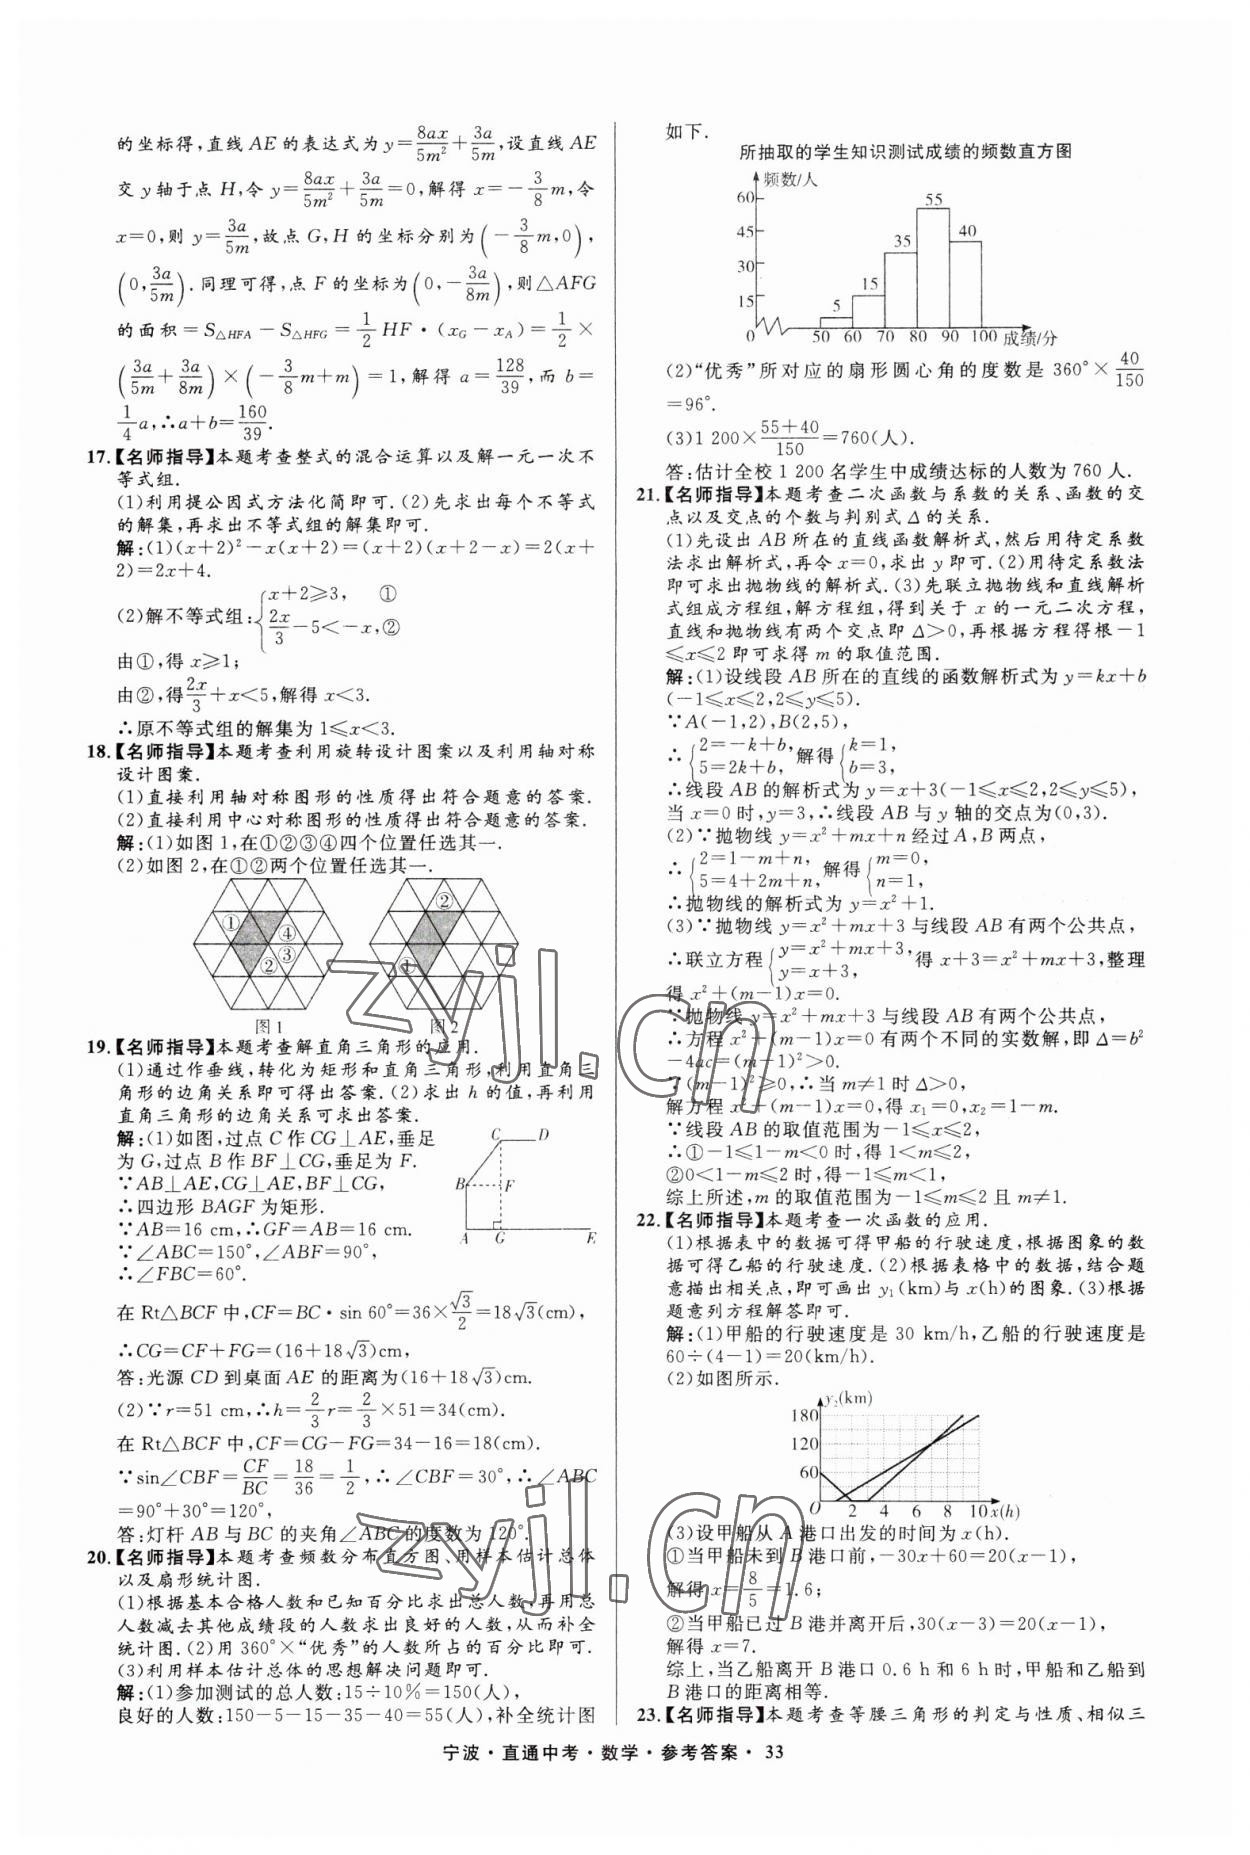 的坐标得,直线 AE 的表达式为 y=8ax/5m²+3a/5m,设直线 AE
交 y 轴于点 H,令 y=8ax/5m²+3a/5m=0,解得 x=-3/8m,令
x=0,则 y=3a/5m,故点 G,H 的坐标分别为(-3/8m,0),
(0,3a/5m).同理可得,点 F 的坐标为(0,-3a/8m),则△AFG
的面积=S△HFA-S△HFG=1/2HF·(xG-xA)=1/2×
(3a/5m+3a/8m)×(-3/8m+m)=1,解得 a=128/39,而 b=
1/4a,∴a+b=160/39.
17.【名师指导】本题考查整式的混合运算以及解一元一次不
等式组.
(1)利用提公因式方法化简即可.(2)先求出每个不等式
的解集,再求出不等式组的解集即可.
解:(1)(x+2)²-x(x+2)=(x+2)(x+2-x)=2(x+
2)=2x+4.
(2)解不等式组:{x+2≥3, ①
2x/3-5<-x,②
由①,得 x≥1;
由②,得2x/3+x<5,解得 x<3.
∴原不等式组的解集为 1≤x<3.
18.【名师指导】本题考查利用旋转设计图案以及利用轴对称
设计图案.
(1)直接利用轴对称图形的性质得出符合题意的答案.
(2)直接利用中心对称图形的性质得出符合题意的答案.
解:(1)如图 1,在①②③④四个位置任选其一.
(2)如图 2,在①②两个位置任选其一.
① ④ ③ ②
② ①
图 1 图 2
19.【名师指导】本题考查解直角三角形的应用.
(1)通过作垂线,转化为矩形和直角三角形,利用直角三
角形的边角关系即可得出答案.(2)求出 h 的值,再利用
直角三角形的边角关系可求出答案.
解:(1)如图,过点 C 作 CG⊥AE,垂足
为 G,过点 B 作 BF⊥CG,垂足为 F.
∵AB⊥AE,CG⊥AE,BF⊥CG,
∴四边形 BAGF 为矩形.
∵AB=16 cm,∴GF=AB=16 cm.
∵∠ABC=150°,∠ABF=90°,
∴∠FBC=60°.
C D
B F
A G E
在 Rt△BCF 中,CF=BC·sin 60°=36×√3/2=18√3(cm),
∴CG=CF+FG=(16+18√3)cm,
答:光源 CD 到桌面 AE 的距离为(16+18√3)cm.
(2)∵r=51 cm,∴h=2/3r=2/3×51=34(cm).
在 Rt△BCF 中,CF=CG-FG=34-16=18(cm).
∵sin∠CBF=CF/BC=18/36=1/2,∴∠CBF=30°,∴∠ABC
=90°+30°=120°,
答:灯杆 AB 与 BC 的夹角∠ABC 的度数为 120°.
20.【名师指导】本题考查频数分布直方图、用样本估计总体
以及扇形统计图.
(1)根据基本合格人数和已知百分比求出总人数,再用总
人数减去其他成绩段的人数求出良好的人数,从而补全
统计图.(2)用 360°×“优秀”的人数所占的百分比即可.
(3)利用样本估计总体的思想解决问题即可.
解:(1)参加测试的总人数:15÷10%=150(人),
良好的人数:150-5-15-35-40=55(人),补全统计图
如下.
所抽取的学生知识测试成绩的频数直方图
频数/人
60
45
30
15
0
5 15 35 55 40
50 60 70 80 90 100 成绩/分
(2)“优秀”所对应的扇形圆心角的度数是 360°×40/150
=96°.
(3)1 200×55+40/150=760(人).
答:估计全校 1 200 名学生中成绩达标的人数为 760 人.
21.【名师指导】本题考查二次函数与系数的关系、函数的交
点以及交点的个数与判别式 Δ 的关系.
(1)先设出 AB 所在的直线函数解析式,然后用待定系数
法求出解析式,再令 x=0,求出 y 即可.(2)用待定系数法
即可求出抛物线的解析式.(3)先联立抛物线和直线解析
式组成方程组,解方程组,得到关于 x 的一元二次方程,
直线和抛物线有两个交点即 Δ>0,再根据方程得根-1
≤x≤2 即可求得 m 的取值范围.
解:(1)设线段 AB 所在的直线的函数解析式为 y=kx+b
(-1≤x≤2,2≤y≤5),
∵A(-1,2),B(2,5),
∴{2=-k+b, 5=2k+b, 解得{k=1, b=3,
∴线段 AB 的解析式为 y=x+3(-1≤x≤2,2≤y≤5),
当 x=0 时,y=3,∴线段 AB 与 y 轴的交点为(0,3).
(2)∵抛物线 y=x²+mx+n 经过 A,B 两点,
∴{2=1-m+n, 5=4+2m+n, 解得{m=0, n=1,
∴抛物线的解析式为 y=x²+1.
(3)∵抛物线 y=x²+mx+3 与线段 AB 有两个公共点,
∴联立方程{y=x²+mx+3, y=x+3, 得 x+3=x²+mx+3,整理
得 x²+(m-1)x=0.
∵抛物线 y=x²+mx+3 与线段 AB 有两个公共点,
∴方程 x²+(m-1)x=0 有两个不同的实数解,即 Δ=b²
-4ac=(m-1)²>0.
∵(m-1)²≥0,∴当 m≠1 时 Δ>0,
解方程 x²+(m-1)x=0,得 x₁=0,x₂=1-m.
∵线段 AB 的取值范围为-1≤x≤2,
∴①-1≤1-m<0 时,得 1<m≤2,
②0<1-m≤2 时,得-1≤m<1,
综上所述,m 的取值范围为-1≤m≤2 且 m≠1.
22.【名师指导】本题考查一次函数的应用.
(1)根据表中的数据可得甲船的行驶速度,根据图象的数
据可得乙船的行驶速度.(2)根据表格中的数据,结合题
意描出相关点,即可画出 y₁(km)与 x(h)的图象.(3)根据
题意列方程解答即可.
解:(1)甲船的行驶速度是 30 km/h,乙船的行驶速度是
60÷(4-1)=20(km/h).
(2)如图所示.
y₂(km)
180
120
60
O 2 4 6 8 10 x(h)
(3)设甲船从 A 港口出发的时间为 x(h).
①当甲船未到 B 港口前,-30x+60=20(x-1),
解得 x=8/5=1.6;
②当甲船已过 B 港并离开后,30(x-3)=20(x-1),
解得 x=7.
综上,当乙船离开 B 港口 0.6 h 和 6 h 时,甲船和乙船到
B 港口的距离相等.
23.【名师指导】本题考查等腰三角形的判定与性质、相似三
宁波·直通中考·数学·参考答案· 33
zyjl.cn
zyjl.cn